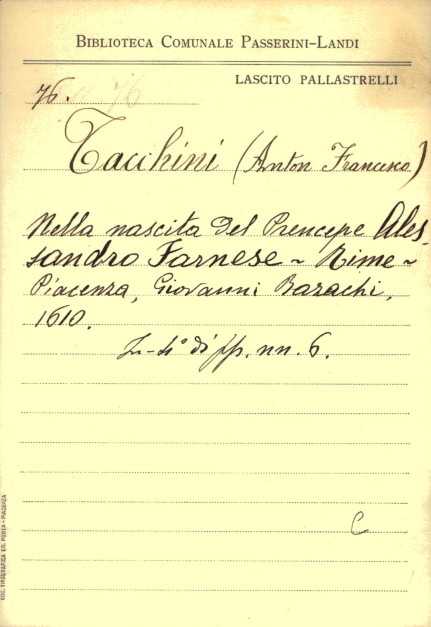 BIBLIOTECA COMUNALE PASSERINI-LANDI
LASCITO PALLASTRELLI
76. 76
Tacchini (Anton Francesco)
Nella nascita del Prencepe Ales-
sandro Farnese ~ Rime ~
Piacenza, Giovanni Bazachi,
1610.
In-4° di pp. nn. 6.
C
SOC. TIPOGRAFICA ED. PORTA - PIACENZA